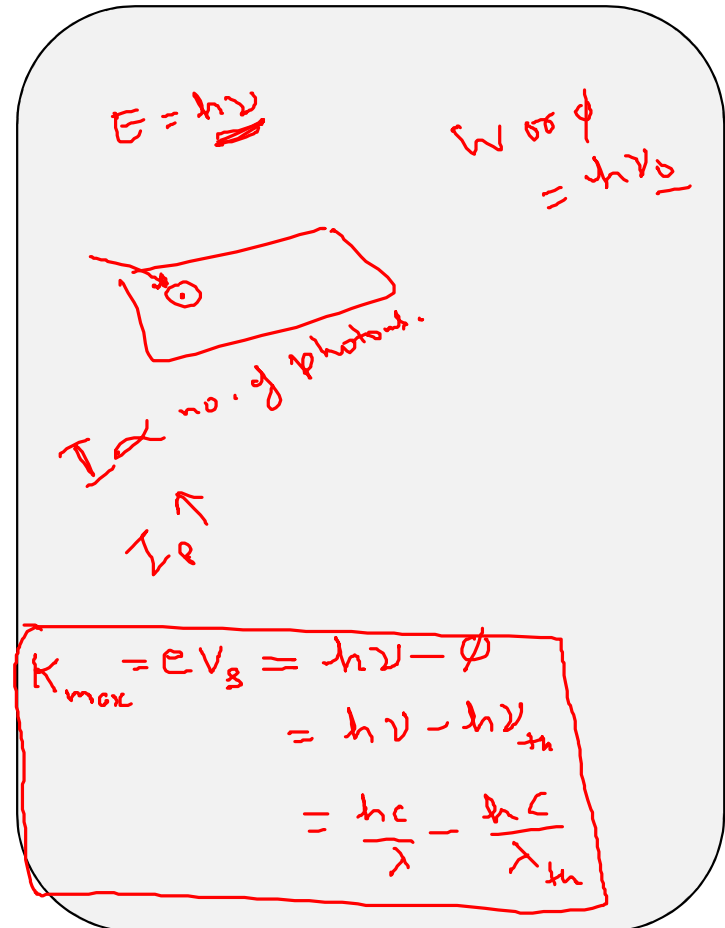 E = hν
W or φ
= hν₀
I ∝ no. of photons.
I_P ↑
K_max = eV_s = hν − φ
= hν − hν_th
= hc/λ − hc/λ_th